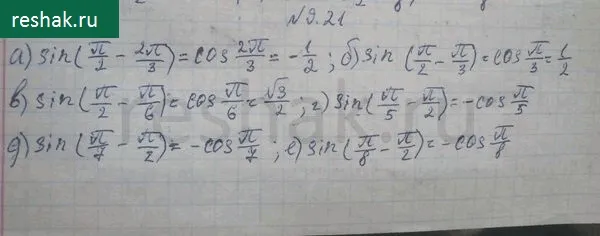 reshak.ru
N9.21
а) sin(π/2 - 2π/3) = cos 2π/3 = -1/2; б) sin(π/2 - π/3) = cos π/3 = 1/2
в) sin(π/2 - π/6) = cos π/6 = √3/2; г) sin(π/5 - π/2) = -cos π/5
д) sin(π/7 - π/2) = -cos π/7; е) sin(π/8 - π/2) = -cos π/8
reshak.ru